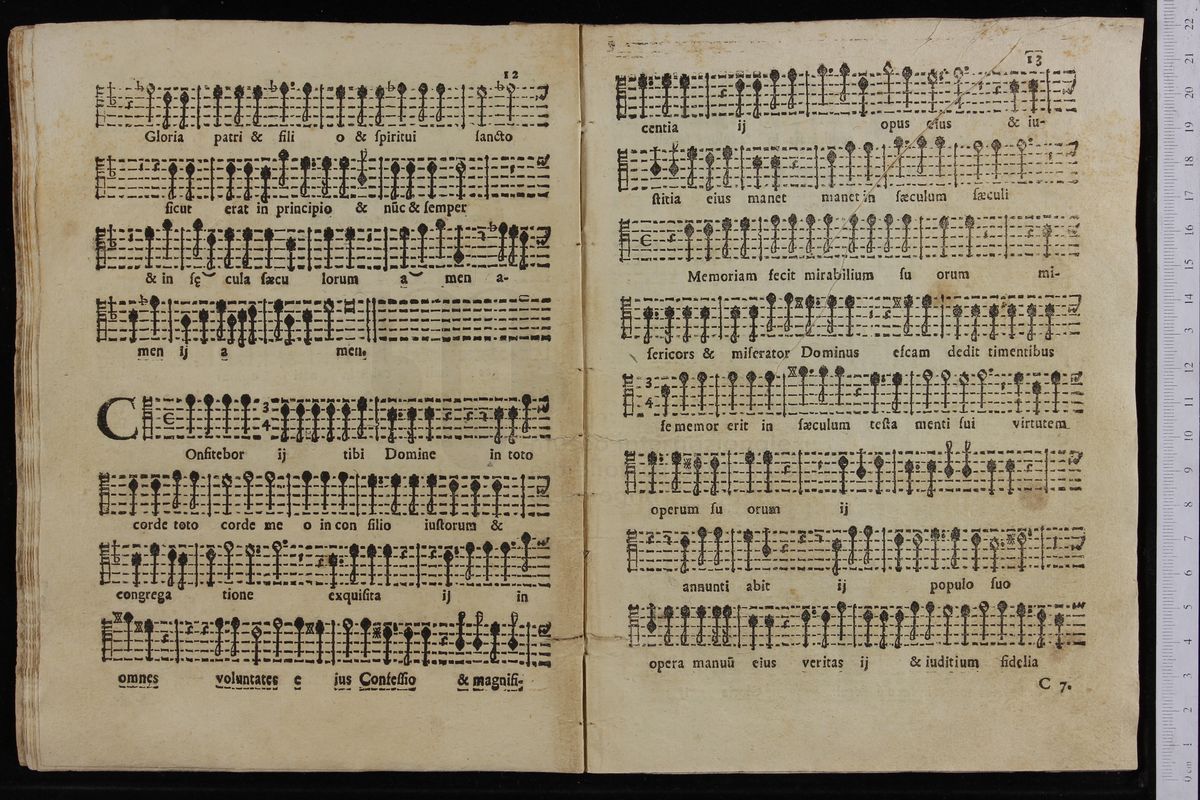 12
Gloria patri & fili o & spiritui sancto
sicut erat in principio & nūc & semper
& in sę cula sæcu lorum a men a-
men ij a men.
COnfitebor ij tibi Domine in toto
corde toto corde me o in con silio iustorum &
congrega tione exquisita ij in
omnes voluntates e ius Confessio & magnifi-
13
centia ij opus eius & iu-
stitia eius manet manet in sæculum sæculi
Memoriam fecit mirabilium su orum mi-
sericors & miserator Dominus escam dedit timentibus
se memor erit in sæculum testa menti sui virtutem
operum su orum ij
annunti abit ij populo suo
opera manuū eius veritas ij & iuditium fidelia
C 7.